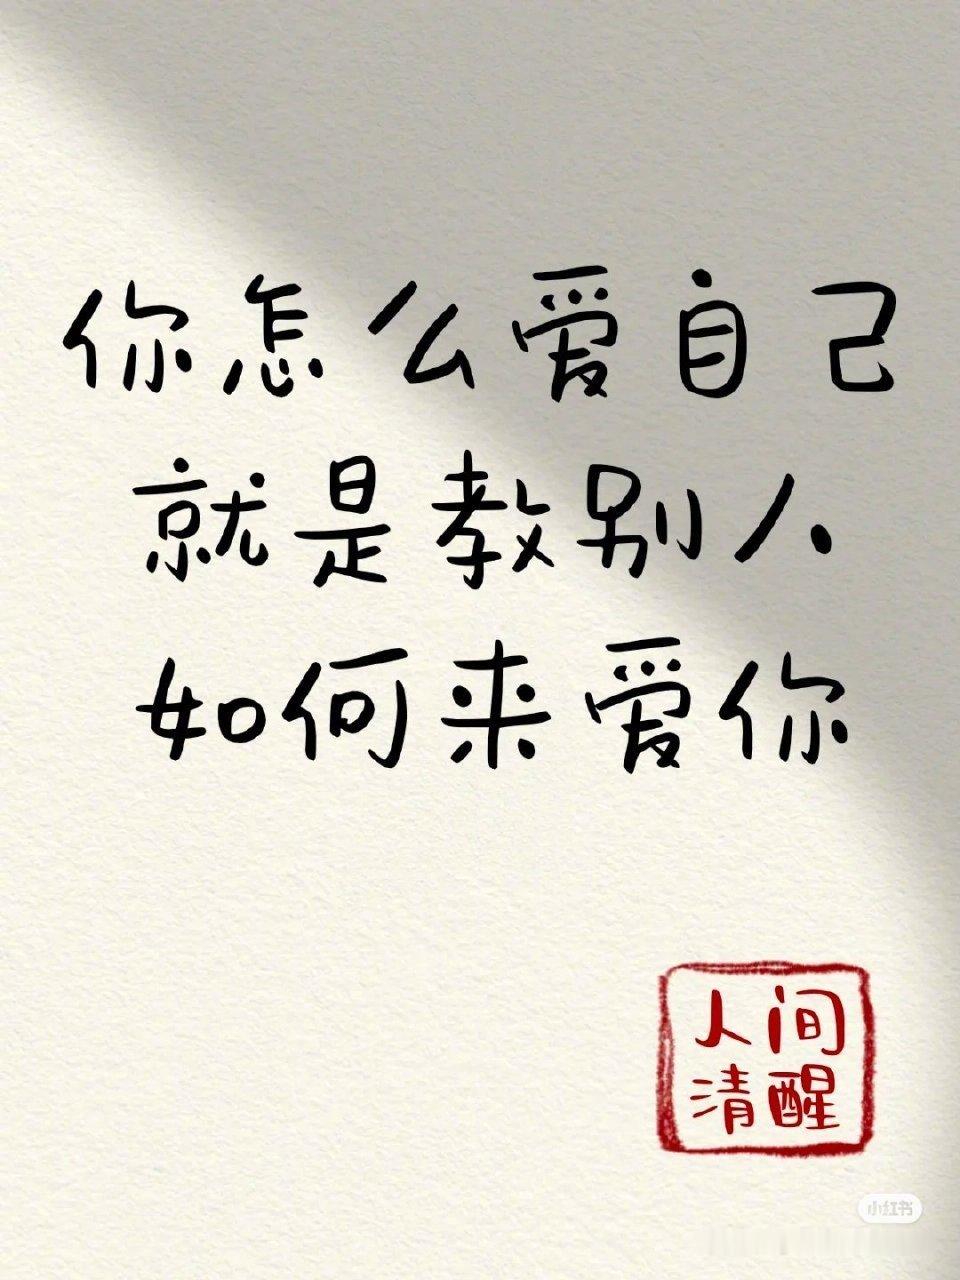 你怎么爱自己
就是教别人
如何来爱你
人间
清醒
小红书